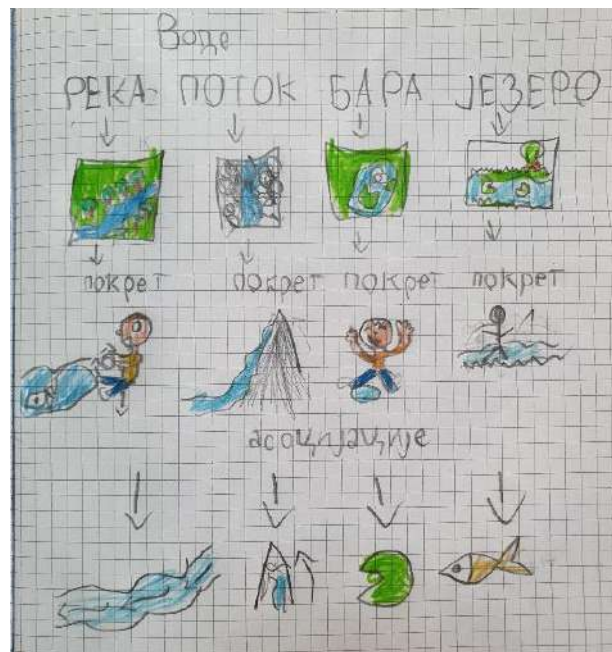 Воде
РЕКА ПОТОК БАРА ЈЕЗЕРО
покрет покрет покрет покрет
асоцијације